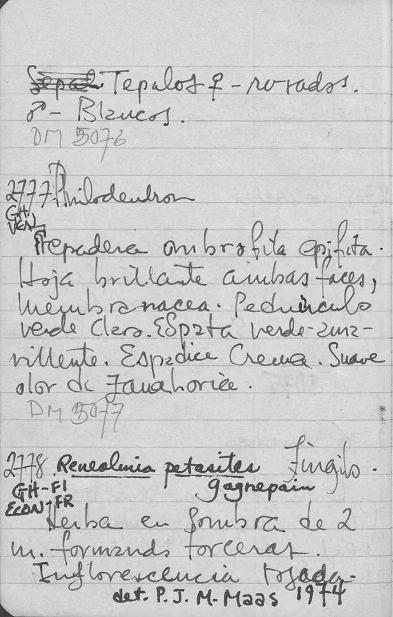 Sepal Tepalos ♀ - rosados.
♂ - Blancos.
DM 5076
2777 Philodendron
GH
VEN
Trepadora ombrofita epifita.
Hoja brillante ambas faces,
membranacea. Pedúnculo
verde claro. Espata verde-ama-
rillente. Espadice Crema. Suave
olor de Zanahoria.
DM 5077
2778 Renealmia petasites Zingib.
GH-FI gagnepain
ECON-FR
Herba en sombra de 2
m. formando torceras.
Inflorescencia rosada-
det. P. J. M. Maas 1974